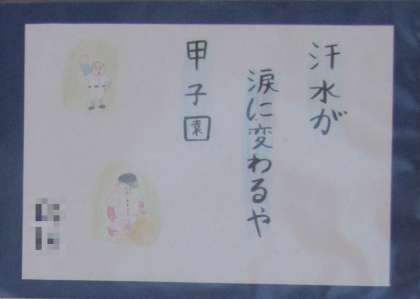 汗水が
涙に変わるや
甲子園